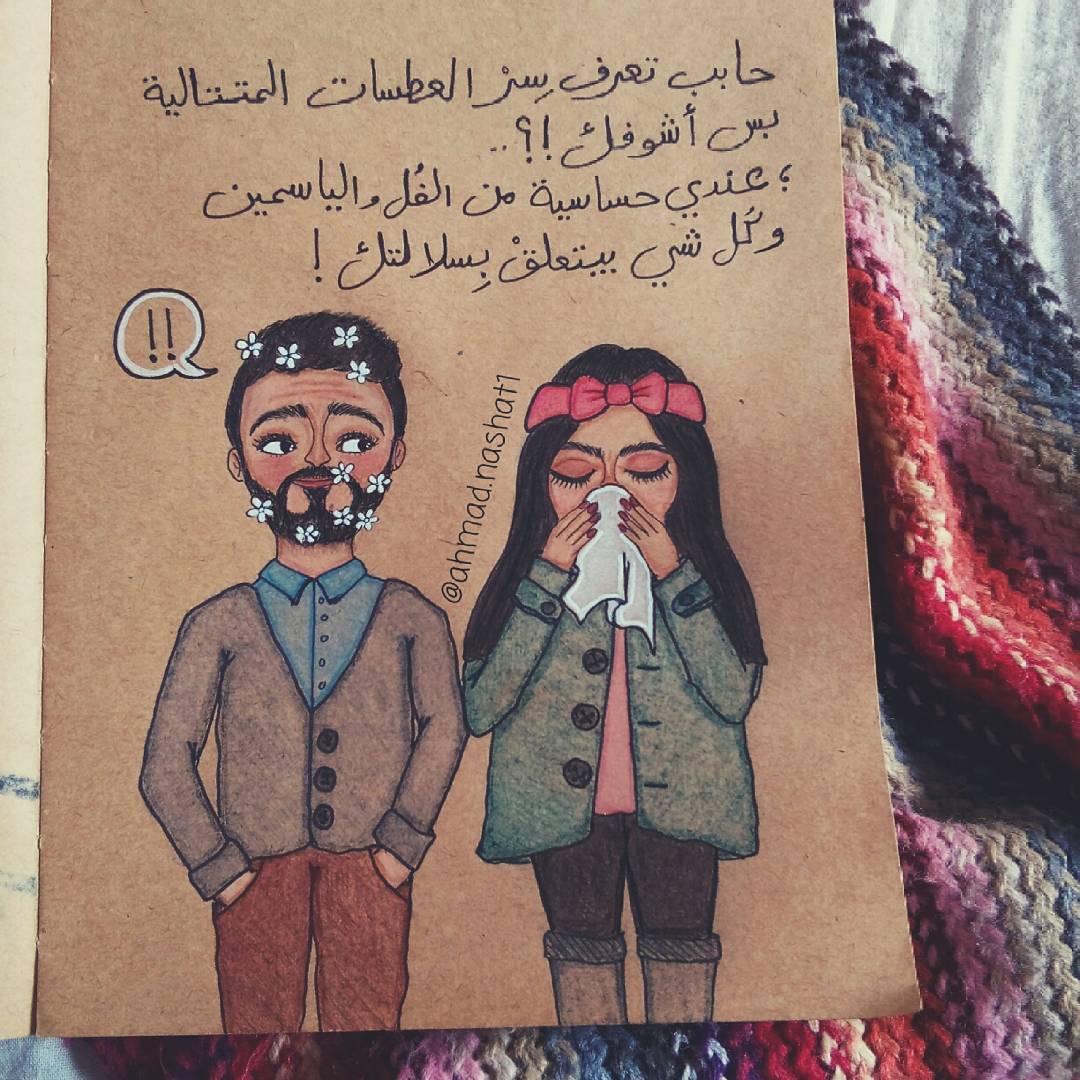 حابب تعرف سِرْ العطسات المتتالية
بس أشوفك !؟..
؛ عندي حساسية من الفُل والياسمين
وكُل شي بيتعلقْ بِسلالتك !
!!
@ahmad.nashat1